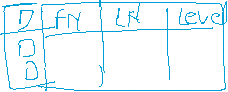 D FN LN Level
D
D